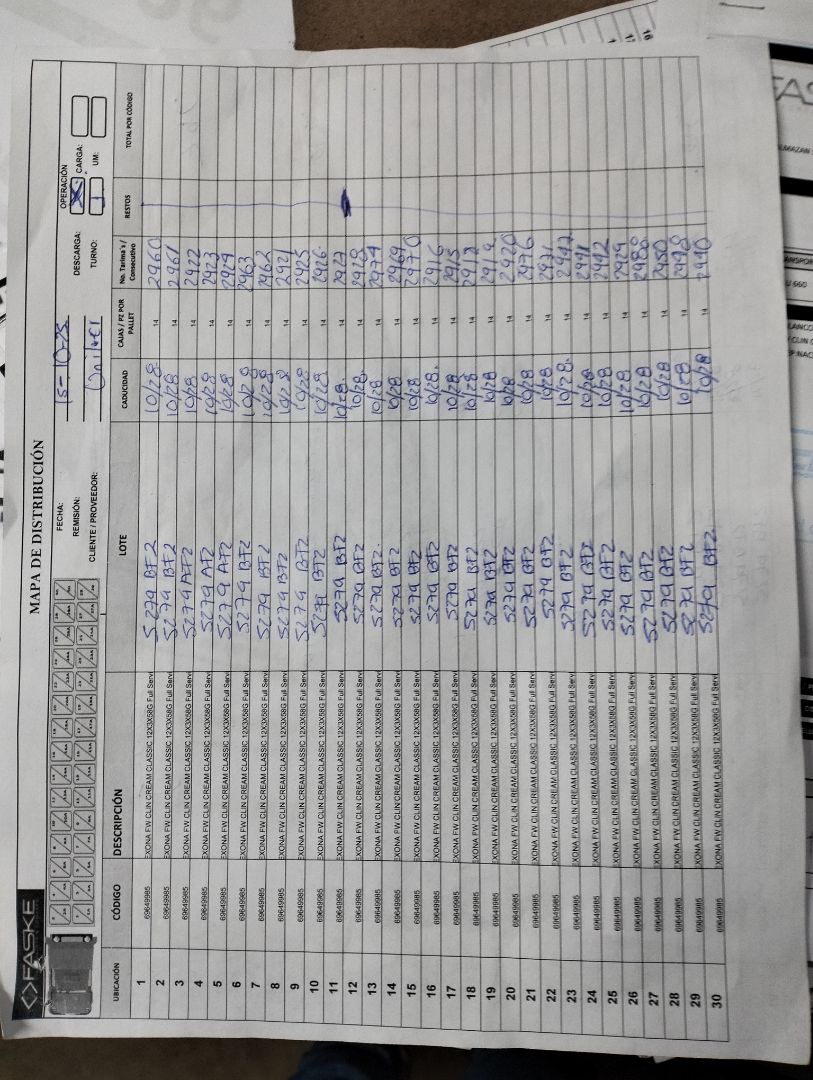 FASKE
MAPA DE DISTRIBUCIÓN
FECHA: 15-10-25 OPERACIÓN
REMISIÓN: DESCARGA: X CARGA:
CLIENTE / PROVEEDOR: Unilever TURNO: 1 UM:
UBICACIÓN CÓDIGO DESCRIPCIÓN LOTE CADUCIDAD CAJAS / PZ POR PALLET No. Tarima´s / Consecutivo RESTOS TOTAL POR CÓDIGO
1 69649985 EXONA FW CLIN CREAM CLASSIC 12X3X58G Full Servi 5279 BF2 10/28 14 2960
2 69649985 EXONA FW CLIN CREAM CLASSIC 12X3X58G Full Servi 5279 BF2 10/28 14 2961
3 69649985 EXONA FW CLIN CREAM CLASSIC 12X3X58G Full Servi 5279 AF2 10/28 14 2922
4 69649985 EXONA FW CLIN CREAM CLASSIC 12X3X58G Full Servi 5279 AF2 10/28 14 2923
5 69649985 EXONA FW CLIN CREAM CLASSIC 12X3X58G Full Servi 5279 AF2 10/28 14 2924
6 69649985 EXONA FW CLIN CREAM CLASSIC 12X3X58G Full Servi 5279 BF2 10/28 14 2963
7 69649985 EXONA FW CLIN CREAM CLASSIC 12X3X58G Full Servi 5279 BF2 10/28 14 2962
8 69649985 EXONA FW CLIN CREAM CLASSIC 12X3X58G Full Servi 5279 BF2 10/28 14 2921
9 69649985 EXONA FW CLIN CREAM CLASSIC 12X3X58G Full Servi 5279 BF2 10/28 14 2925
10 69649985 EXONA FW CLIN CREAM CLASSIC 12X3X58G Full Servi 5279 BF2 10/28 14 2926
11 69649985 EXONA FW CLIN CREAM CLASSIC 12X3X58G Full Servi 5279 BF2 10/28 14 2927
12 69649985 EXONA FW CLIN CREAM CLASSIC 12X3X58G Full Servi 5279 BF2 10/28 14 2928
13 69649985 EXONA FW CLIN CREAM CLASSIC 12X3X58G Full Servi 5279 BF2 10/28 14 2974
14 69649985 EXONA FW CLIN CREAM CLASSIC 12X3X58G Full Servi 5279 BF2 10/28 14 2969
15 69649985 EXONA FW CLIN CREAM CLASSIC 12X3X58G Full Servi 5279 BF2 10/28 14 2970
16 69649985 EXONA FW CLIN CREAM CLASSIC 12X3X58G Full Servi 5279 BF2 10/28 14 2916
17 69649985 EXONA FW CLIN CREAM CLASSIC 12X3X58G Full Servi 5279 BF2 10/28 14 2915
18 69649985 EXONA FW CLIN CREAM CLASSIC 12X3X58G Full Servi 5279 BF2 10/28 14
19 69649985 EXONA FW CLIN CREAM CLASSIC 12X3X58G Full Servi 5279 BF2 10/28 14
20 69649985 EXONA FW CLIN CREAM CLASSIC 12X3X58G Full Servi 5279 BF2 10/28 14 2920
21 69649985 EXONA FW CLIN CREAM CLASSIC 12X3X58G Full Servi 5279 BF2 10/28 14 2976
22 69649985 EXONA FW CLIN CREAM CLASSIC 12X3X58G Full Servi 5279 BF2 10/28 14 2971
23 69649985 EXONA FW CLIN CREAM CLASSIC 12X3X58G Full Servi 5279 BF2 10/28 14
24 69649985 EXONA FW CLIN CREAM CLASSIC 12X3X58G Full Servi 5279 BF2 10/28 14 2941
25 69649985 EXONA FW CLIN CREAM CLASSIC 12X3X58G Full Servi 5279 BF2 10/28 14 2942
26 69649985 EXONA FW CLIN CREAM CLASSIC 12X3X58G Full Servi 5279 BF2 10/28 14 2929
27 69649985 EXONA FW CLIN CREAM CLASSIC 12X3X58G Full Servi 5279 BF2 10/28 14 2980
28 69649985 EXONA FW CLIN CREAM CLASSIC 12X3X58G Full Servi 5279 BF2 10/28 14 2950
29 69649985 EXONA FW CLIN CREAM CLASSIC 12X3X58G Full Servi 5279 BF2 10/28 14
30 69649985 EXONA FW CLIN CREAM CLASSIC 12X3X58G Full Servi 5279 BF2 10/28 14 2940